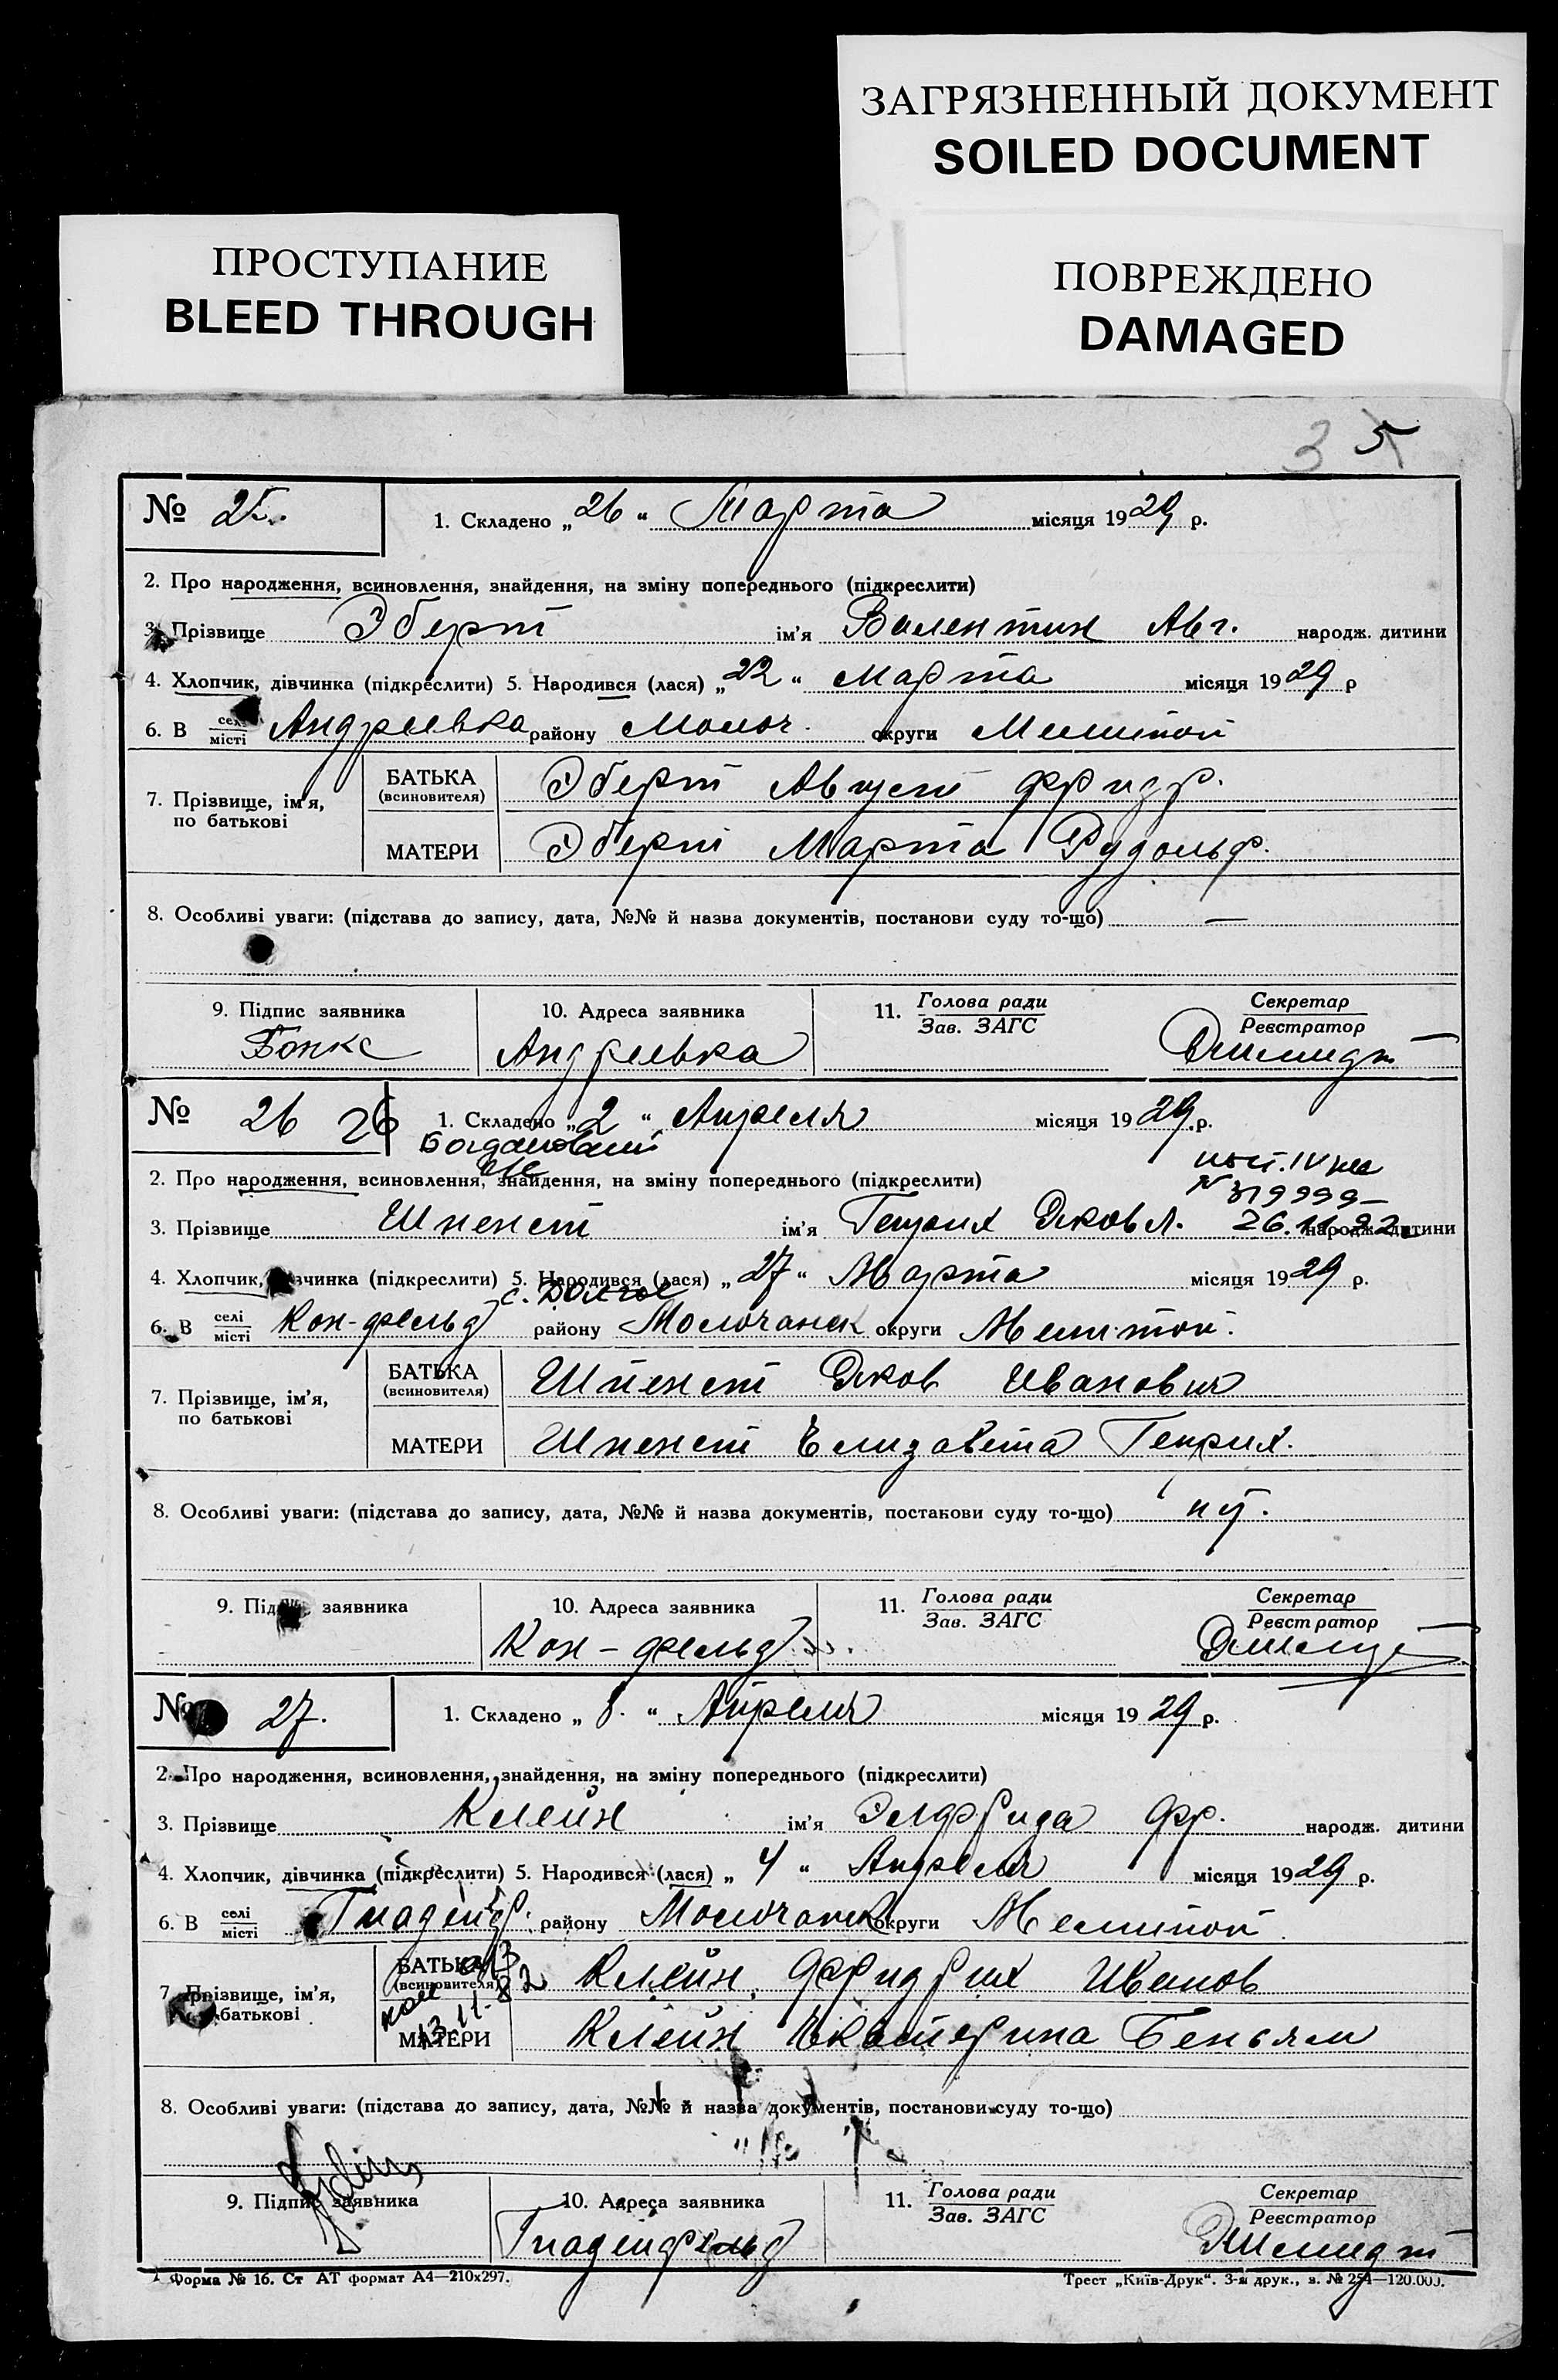 ЗАГРЯЗНЕННЫЙ ДОКУМЕНТ
SOILED DOCUMENT
ПРОСТУПАНИЕ
BLEED THROUGH
ПОВРЕЖДЕНО
DAMAGED
3 5
№ 25. 1. Складено „26“ Марта місяця 1929 р.
2. Про народження, всиновлення, знайдення, на зміну попереднього (підкреслити)
3. Прізвище Эберт ім'я Валентин Авг. народж. дитини
4. Хлопчик, дівчинка (підкреслити) 5. Народився (лася) „22“ Марта місяця 1929 р
6. В селі місті Андреевка району Молоч. округи Мелитоп
7. Прізвище, ім'я, по батькові
БАТЬКА (всиновителя) Эберт Август Фридр.
МАТЕРИ Эберт Марта Рудольф.
8. Особливі уваги: (підстава до запису, дата, №№ й назва документів, постанови суду то-що) —
9. Підпис заявника 10. Адреса заявника 11. Голова ради Зав. ЗАГС Секретар Реєстратор
Андреевка
№ 26 26 1. Складено „2“ Апреля місяця 1929 р.
2. Про народження, всиновлення, знайдення, на зміну попереднього (підкреслити)
№ 319999
3. Прізвище Шпенст ім'я Генрих Яковл. 26.11.92 народж. дитини
4. Хлопчик, дівчинка (підкреслити) 5. Народився (лася) „27“ Марта місяця 1929 р.
с. Долгое
6. В селі місті Кон-фельд району Молочанск округи Мелитоп.
7. Прізвище, ім'я, по батькові
БАТЬКА (всиновителя) Шпенст Яков Иванович
МАТЕРИ Шпенст Елизавета Генрих.
8. Особливі уваги: (підстава до запису, дата, №№ й назва документів, постанови суду то-що)
9. Підпис заявника 10. Адреса заявника 11. Голова ради Зав. ЗАГС Секретар Реєстратор
Кон-фельд
№ 27. 1. Складено „8.“ Апреля місяця 1929 р.
2. Про народження, всиновлення, знайдення, на зміну попереднього (підкреслити)
3. Прізвище Клейн ім'я Элфрида Фр. народж. дитини
4. Хлопчик, дівчинка (підкреслити) 5. Народився (лася) „4“ Апреля місяця 1929 р.
6. В селі місті Гнаденф. району Молочанск округи Мелитоп.
7. Прізвище, ім'я, по батькові
БАТЬКА (всиновителя) Клейн Фридрих Иванов
МАТЕРИ Клейн Екатерина Беньям
8. Особливі уваги: (підстава до запису, дата, №№ й назва документів, постанови суду то-що)
9. Підпис заявника 10. Адреса заявника 11. Голова ради Зав. ЗАГС Секретар Реєстратор
Гнаденфельд
Форма № 16. Ст АТ формат А4—210х297. Трест „Київ-Друк“. 3-я друк., з. № 254—120.000.